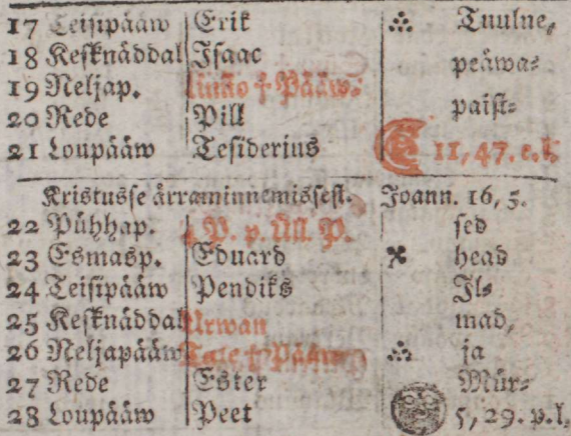 17 Teisipääw Erik ⛬ Tuulne,
18 Kesknäddal Isaac peäwa⸗
19 Neljap. paist⸗
20 Rede Pill
21 Loupääw Tesiderius 11, 47. e. l.
Kristusse ärraminnemissest. Joann. 16, 5.
22 Pühhap. 4 P. p. Üll. P. sed
23 Esmasp. Eduard head
24 Teisipääw Pendiks Il⸗
25 Kesknäddal Urwan mad,
26 Neljapääw ⛬ ja
27 Rede Ester Mür⸗
28 Loupääw Peet 5, 29. p. l,